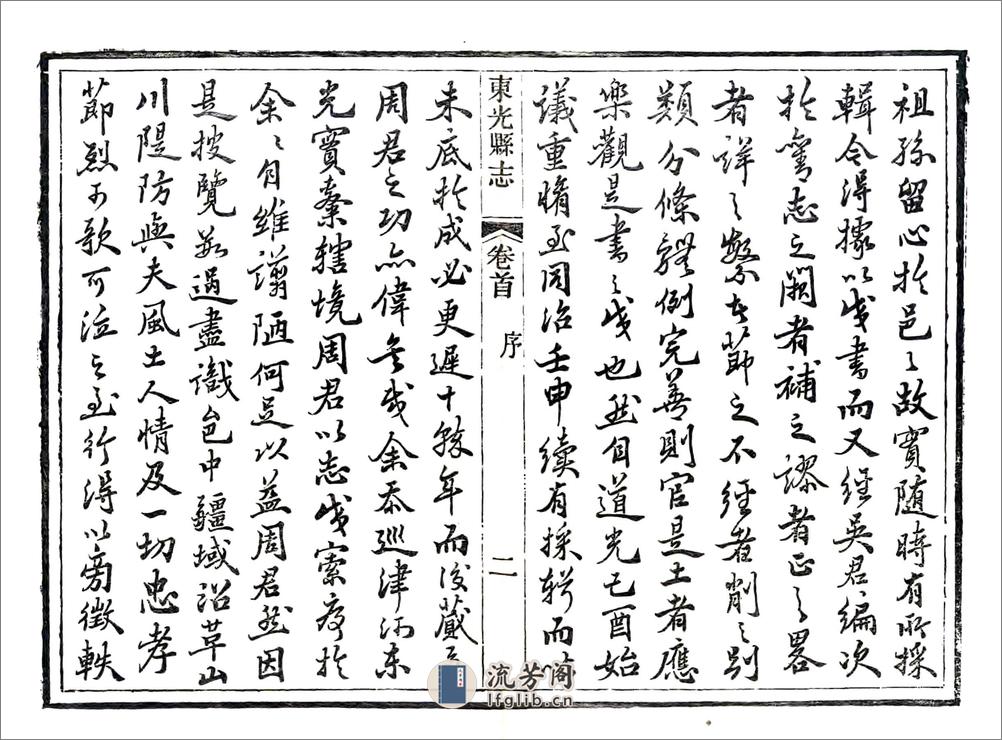 祖孫留心於邑之故實隨時有所採
輯今得據以成書而又經吳君編次
於舊志之闕者補之謬者正之略
者詳之繁者節之不經者削之別
類分條體例完善則官是土者應
樂觀是書之成也然自道光己酉始
議重脩至同治壬申續有採輯而
未底於成必更遲十餘年而後蕆
周君之功亦偉矣哉余忝巡津河東
光實秦轄境周君以志成索序於
余余自維譾陋何足以益周君然因
是披覽一過盡識邑中疆域沿革山
川隄防與夫風土人情及一切忠孝
節烈可歌可泣之至行得以旁徵軼
東光縣志 卷首 序 二
流芳阁
lfglib.cn